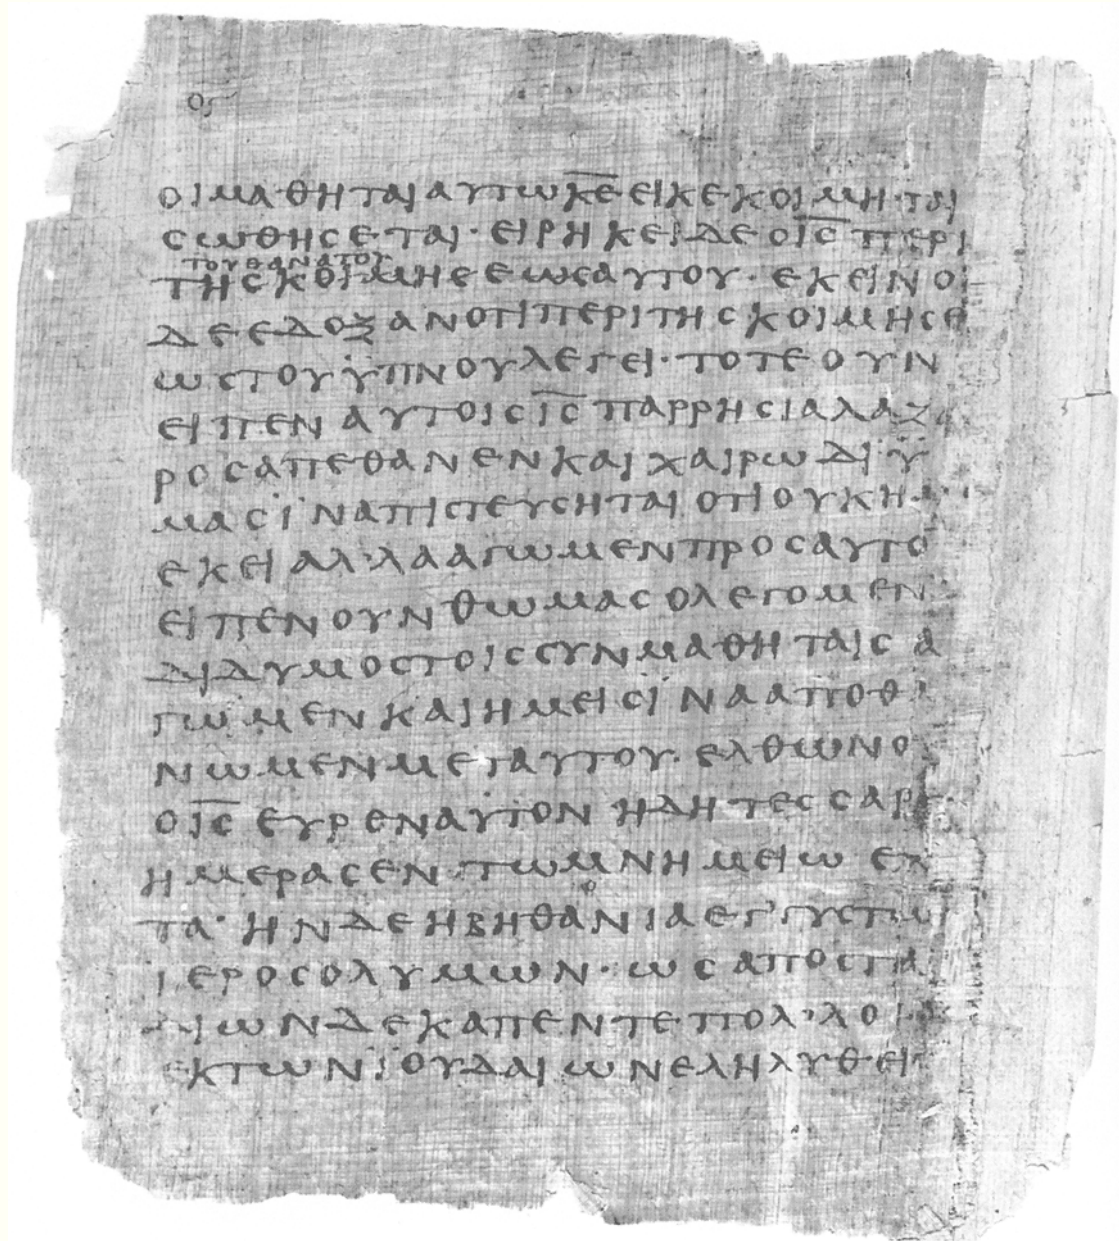 Οϛ
ΟΙΜΑΘΗΤΑΙΑΥΤΩΚ̅Ε̅ΕΙΚΕΚΟΙΜΗΤΑΙ
ϹΩΘΗϹΕΤΑΙ·ΕΙΡΗΚΕΙΔΕΟΙ̅Ϲ̅ΠΕΡΙ
ΤΟΥΘΑΝΑΤΟΥ
ΤΗϹΚΟΙΜΗϹΕΩϹΑΥΤΟΥ·ΕΚΕΙΝΟΙ
ΔΕΕΔΟΞΑΝΟΤΙΠΕΡΙΤΗϹΚΟΙΜΗϹΕ
ΩϹΤΟΥΫΠΝΟΥΛΕΓΕΙ·ΤΟΤΕΟΥΝ
ΕΙΠΕΝΑΥΤΟΙϹΙ̅Ϲ̅ΠΑΡΡΗϹΙΑΛΑΖΑ
ΡΟϹΑΠΕΘΑΝΕΝΚΑΙΧΑΙΡΩΔΙΫ
ΜΑϹΪΝΑΠΙϹΤΕΥϹΗΤΑΙΟΤΙΟΥΚΗΜ
ΕΚΕΙΑΛ’ΛΑΑΓΩΜΕΝΠΡΟϹΑΥΤΟ̅
ΕΙΠΕΝΟΥΝΘΩΜΑϹΟΛΕΓΟΜΕΝ
ΔΙΔΥΜΟϹΤΟΙϹϹΥΝΜΑΘΗΤΑΙϹΑ
ΓΩΜΕΝΚΑΙΗΜΕΙϹΪΝΑΑΠΟΘ
ΝΩΜΕΝΜΕΤΑΥΤΟΥ·ΕΛΘΩΝΟ
ΟΙ̅Ϲ̅ΕΥΡΕΝΑΥΤΟΝΗΔΗΤΕϹϹΑΡ
ΗΜΕΡΑϹΕΝΤΩΜΝΗΜΕΙΩΕΧ
ΤΑ·ΗΝΔΕΗΒΗΘΑΝΙΑΕΓ’ΓΥϹΤΩ
ΪΕΡΟϹΟΛΥΜΩΝ·ΩϹΑΠΟϹΤΑ
ΔΙΩΝΔΕΚΑΠΕΝΤΕΠΟΛ’ΛΟΙ
ΕΚΤΩΝΪΟΥΔΑΙΩΝΕΛΗΛΥΘΕΙ